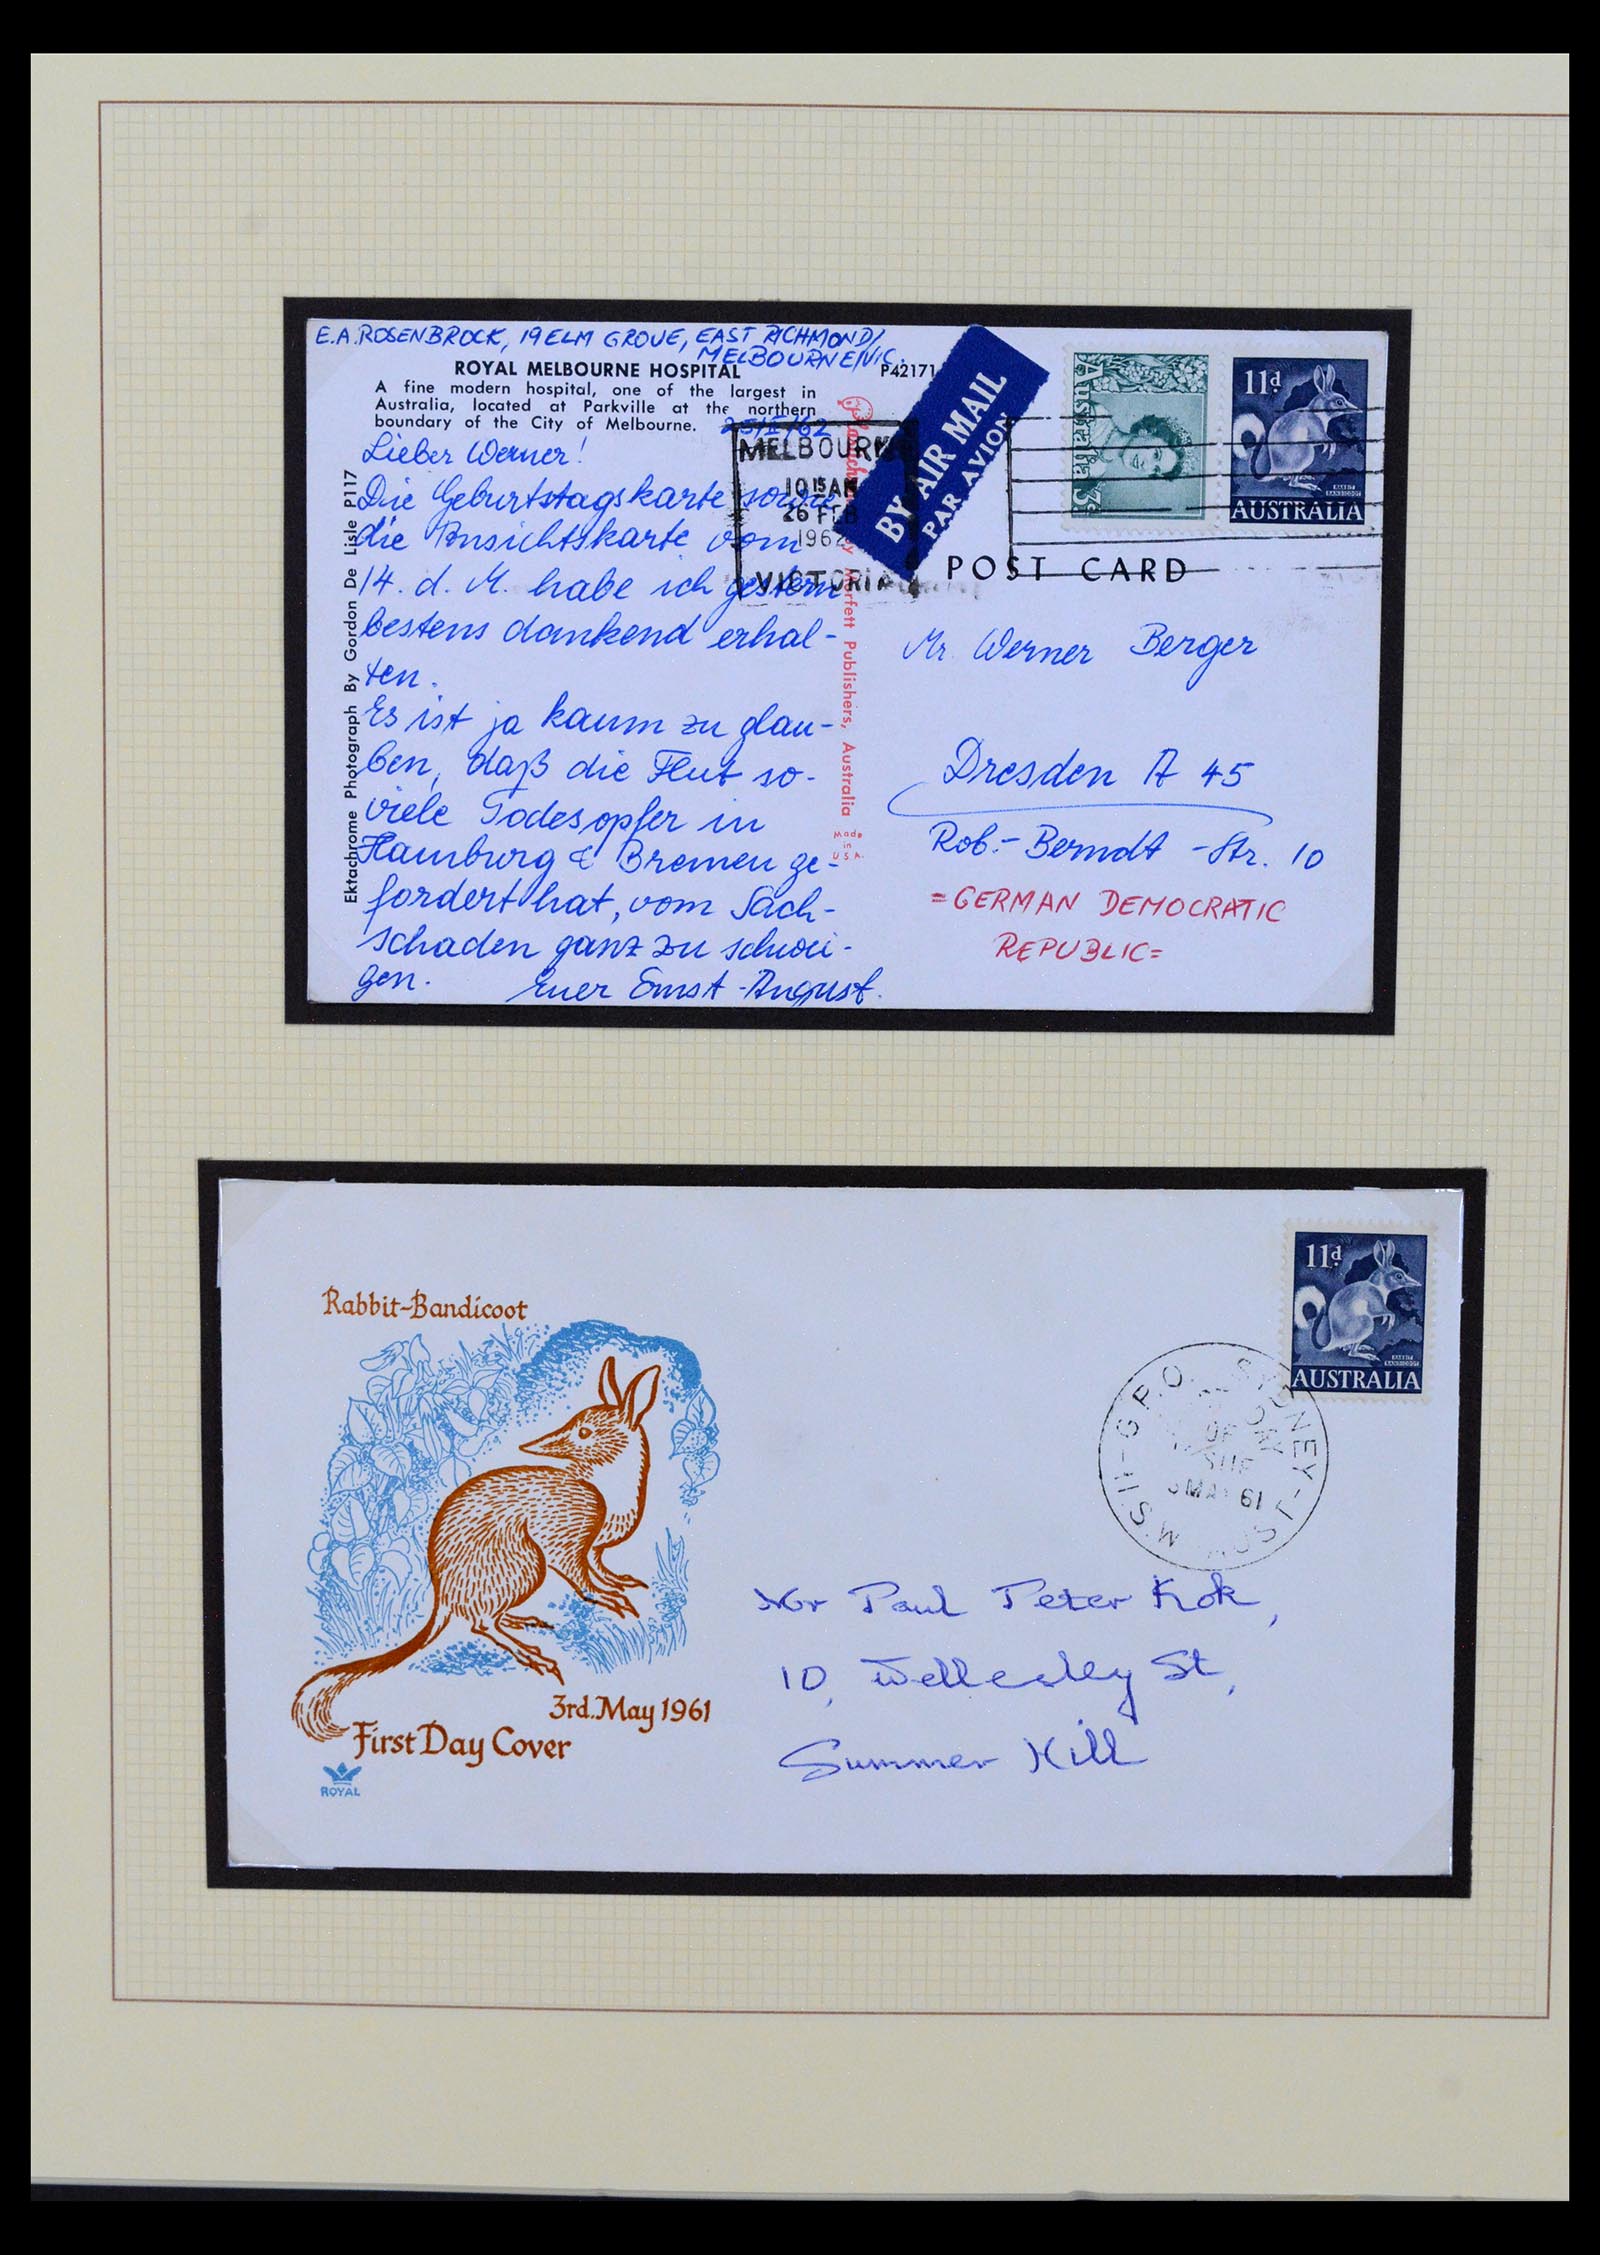 E.A.ROSENBROCK, 19 ELM GROVE, EAST RICHMOND/
MELBOURNE/VIC.
ROYAL MELBOURNE HOSPITAL
P42171
A fine modern hospital, one of the largest in
Australia, located at Parkville at the northern
boundary of the City of Melbourne.
25/II/62
Lieber Werner!
Die Geburtstagskarte sowie
die Ansichtskarte vom
14. d. M. habe ich gestern
bestens dankend erhal-
ten.
Es ist ja kaum zu glau-
ben, daß die Flut so-
viele Todesopfer in
Hamburg & Bremen ge-
fordert hat, vom Sach-
schaden ganz zu schwei-
gen.
Euer Ernst-August.
Ektachrome Photograph By Gordon De Lisle P117
Morfett Publishers, Australia
Made
in
U.S.A.
MELBOURNE
10 15 AM
26 FEB
1962
VICTORIA
BY AIR MAIL
PAR AVION
Australia 3d
11d
RABBIT
BANDICOOT
AUSTRALIA
POST CARD
Mr. Werner Berger
Dresden A 45
Rob.-Berndt-Str. 10
=GERMAN DEMOCRATIC
REPUBLIC=
Rabbit-Bandicoot
3rd. May 1961
First Day Cover
ROYAL
11d
RABBIT
BANDICOOT
AUSTRALIA
G.P.O. SYDNEY
MAY 61
Mr Paul Peter Kok,
10, Wellesley St,
Summer Hill